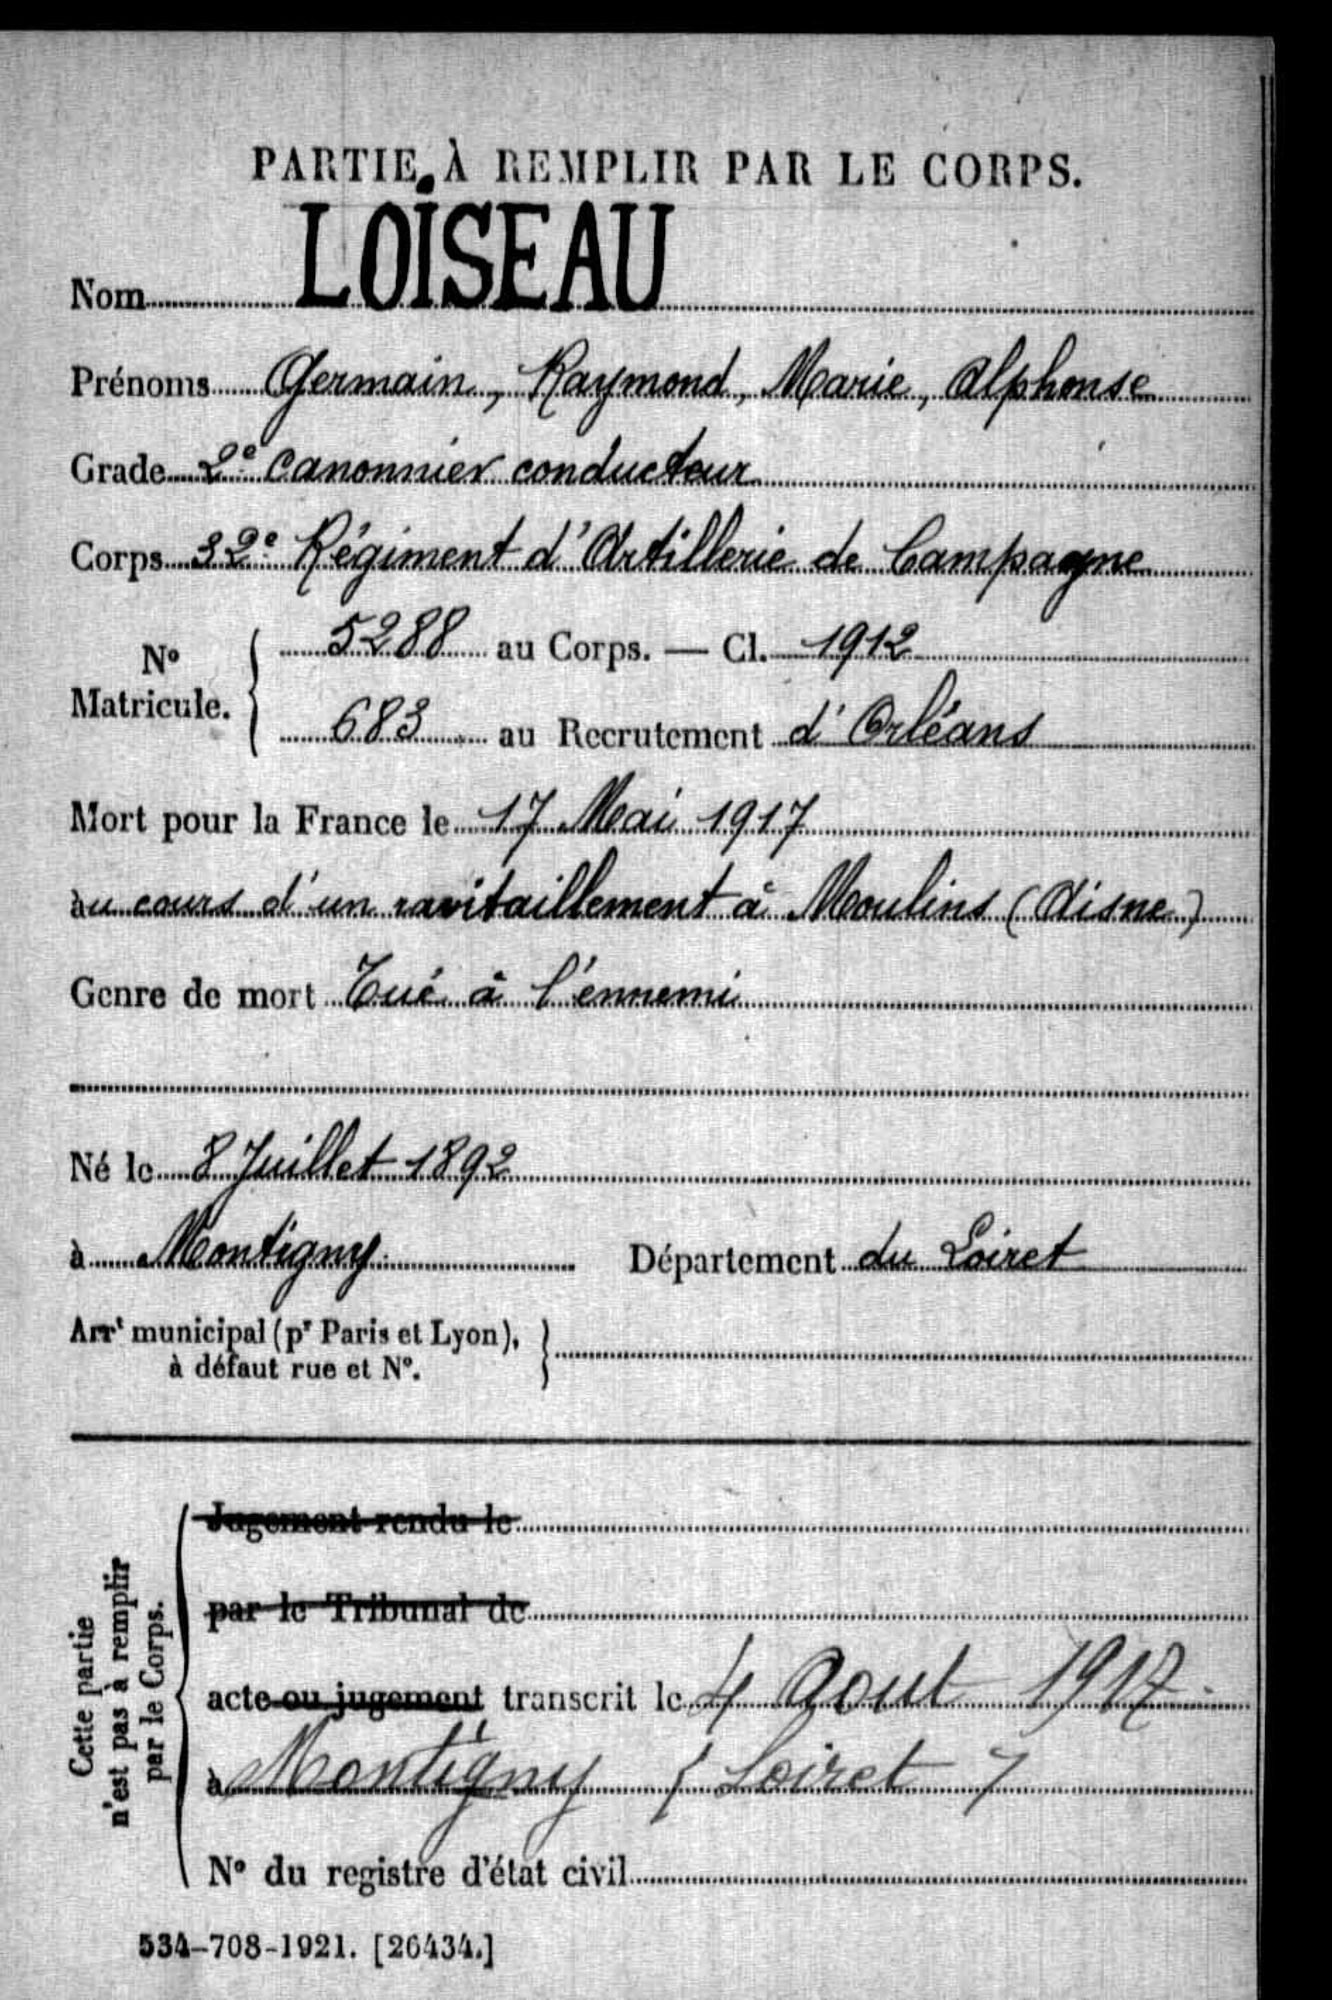 PARTIE À REMPLIR PAR LE CORPS.
Nom LOISEAU
Prénoms Germain, Raymond, Marie, Alphonse
Grade 2e canonnier conducteur
Corps 32e Régiment d'Artillerie de Campagne
No Matricule. { 5288 au Corps. — Cl. 1912
683 au Recrutement d'Orléans
Mort pour la France le 17 Mai 1917
au cours d'un ravitaillement à Moulins (Aisne)
Genre de mort Tué à l'ennemi
Né le 8 Juillet 1892
à Montigny Département du Loiret
Arrt municipal (pr Paris et Lyon), }
à défaut rue et No.
Cette partie
n'est pas à remplir
par le Corps.
Jugement rendu le
par le Tribunal de
acte ou jugement transcrit le 4 Aout 1917.
à Montigny (Loiret)
No du registre d'état civil
534-708-1921. [26434.]